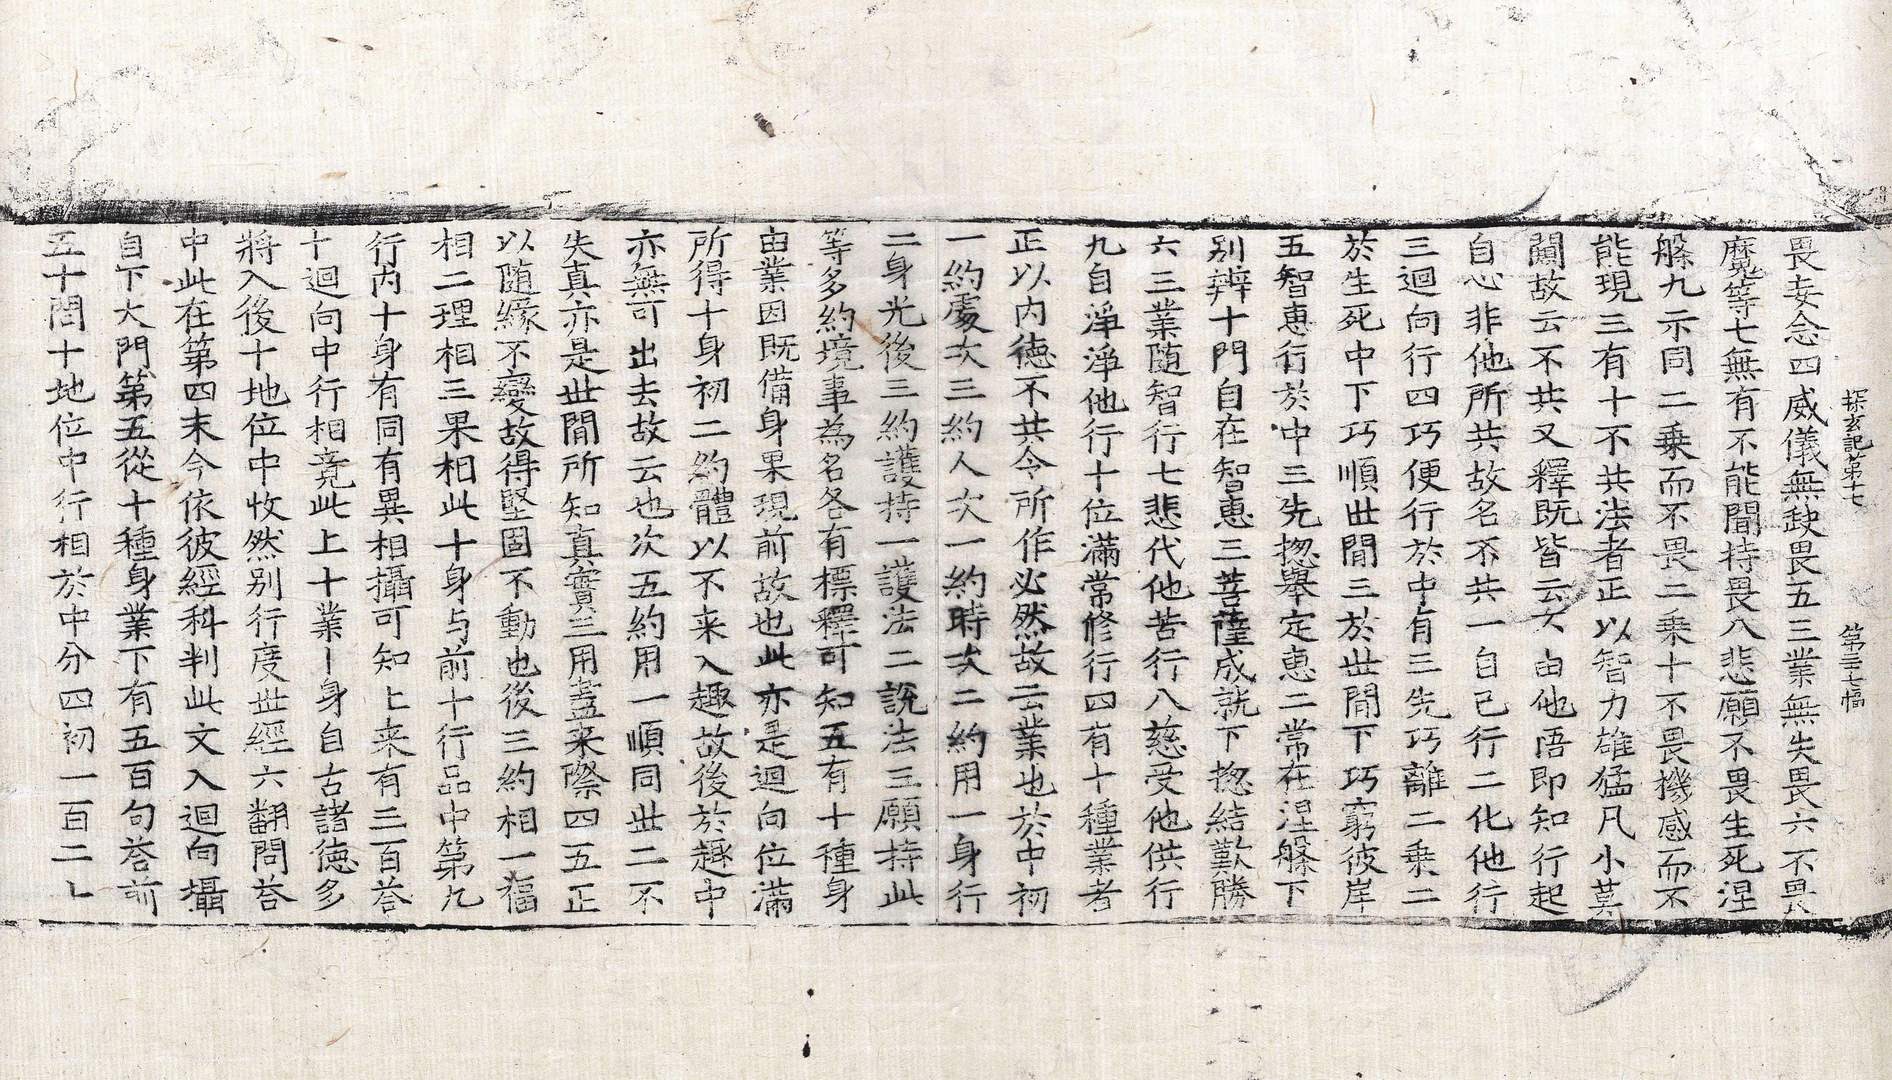 探玄記第十七　第三十七幅
畏妄念四威儀無缺畏五三業無失畏六不畏
魔等七無有不能聞持畏八悲願不畏生死涅
槃九示同二乘而不畏二乘十不畏機感而不
能現三有十不共法者正以智力雄猛凡小莫
闚故云不共又釋既皆云不由他悟即知行起
自心非他所共故名不共一自己行二化他行
三迴向行四巧便行於中有三先巧離二乘二
於生死中下巧順世間三於世間下巧窮彼岸
五智恵行於中三先揔舉定恵二常在涅槃下
别辨十門自在智恵三菩薩成就下揔結歎勝
六三業随智行七悲代他苦行八慈受他供行
九自淨淨他行十位滿常修行四有十種業者
正以内徳不共令所作必然故云業也於中初
一約處次三約人次一約時次二約用一身行
二身光後三約護持一護法二說法三願持此
等多約境事為名各有標釋可知五有十種身
由業因既備身果現前故也此亦是迴向位滿
所得十身初二約體以不来入趣故後於趣中
亦無可出去故云也次五約用一順同世二不
失真亦是世間所知真實三用盡来際四五正
以随緣不變故得堅固不動也後三約相一福
相二理相三果相此十身与前十行品中第九
行内十身有同有異相攝可知上来有三百荅
十迴向中行相竟此上十業十身自古諸徳多
將入後十地位中收然别行度世經六翻問荅
中此在第四末今依彼經科判此文入迴向攝
自下大門第五從十種身業下有五百句荅前
五十問十地位中行相於中分四初一百二十